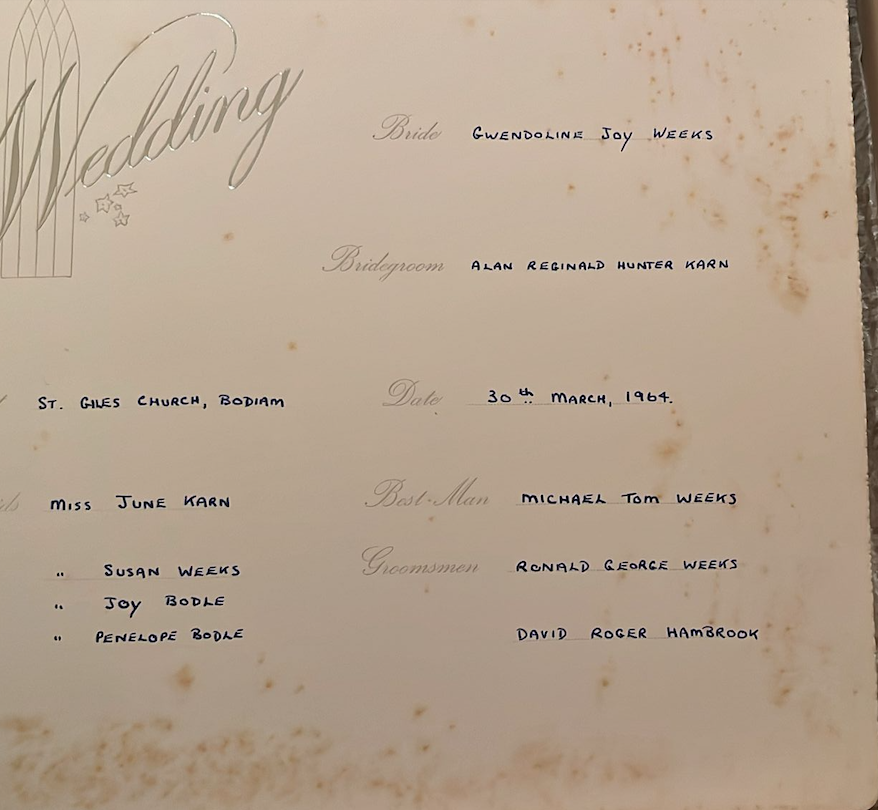 Wedding
Bride GWENDOLINE JOY WEEKS
Bridegroom ALAN REGINALD HUNTER KARN
ST. GILES CHURCH, BODIAM
Date 30th MARCH, 1964.
MISS JUNE KARN
Best-Man MICHAEL TOM WEEKS
" SUSAN WEEKS
Groomsmen RONALD GEORGE WEEKS
" JOY BODLE
" PENELOPE BODLE
DAVID ROGER HAMBROOK